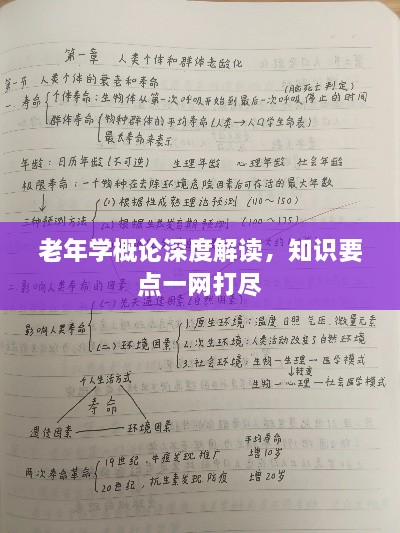 第一章 人类个体和群体老龄化
第一节 人类个体的衰老和寿命
(脑死亡判定)
一、寿命 个体寿命：生物体从第一次呼吸开始到最后一次呼吸停止的时间
群体寿命 物种群体的平均寿命(人类→人口学生命表)
最大寿命来表示
年龄：日历年龄(不可逆) 生理年龄 心理年龄 社会年龄
极限寿命：一个物种在去除环境危险因素后可存活的最大年数
三种预测方法 (1)根据性成熟理论预测 (110~150)
老年学概论深度解读，知识要
点一网打尽
二、影响人类寿命的因素
影响人类寿命
(二)环境因素 1.原生环境：温度 日照 气压、微量元素
2.次生环境：人类活动改变了自然环境
3.社会环境：生物一生理一医学模式
↓转变
生物一心理一社会医学模式
个人生活方式
寿命
遗传因素 环境因素
平均寿命
两次寿命革命 19世纪，牛痘发现推广 增10岁
20世纪，抗生素发现 防疫 增20岁